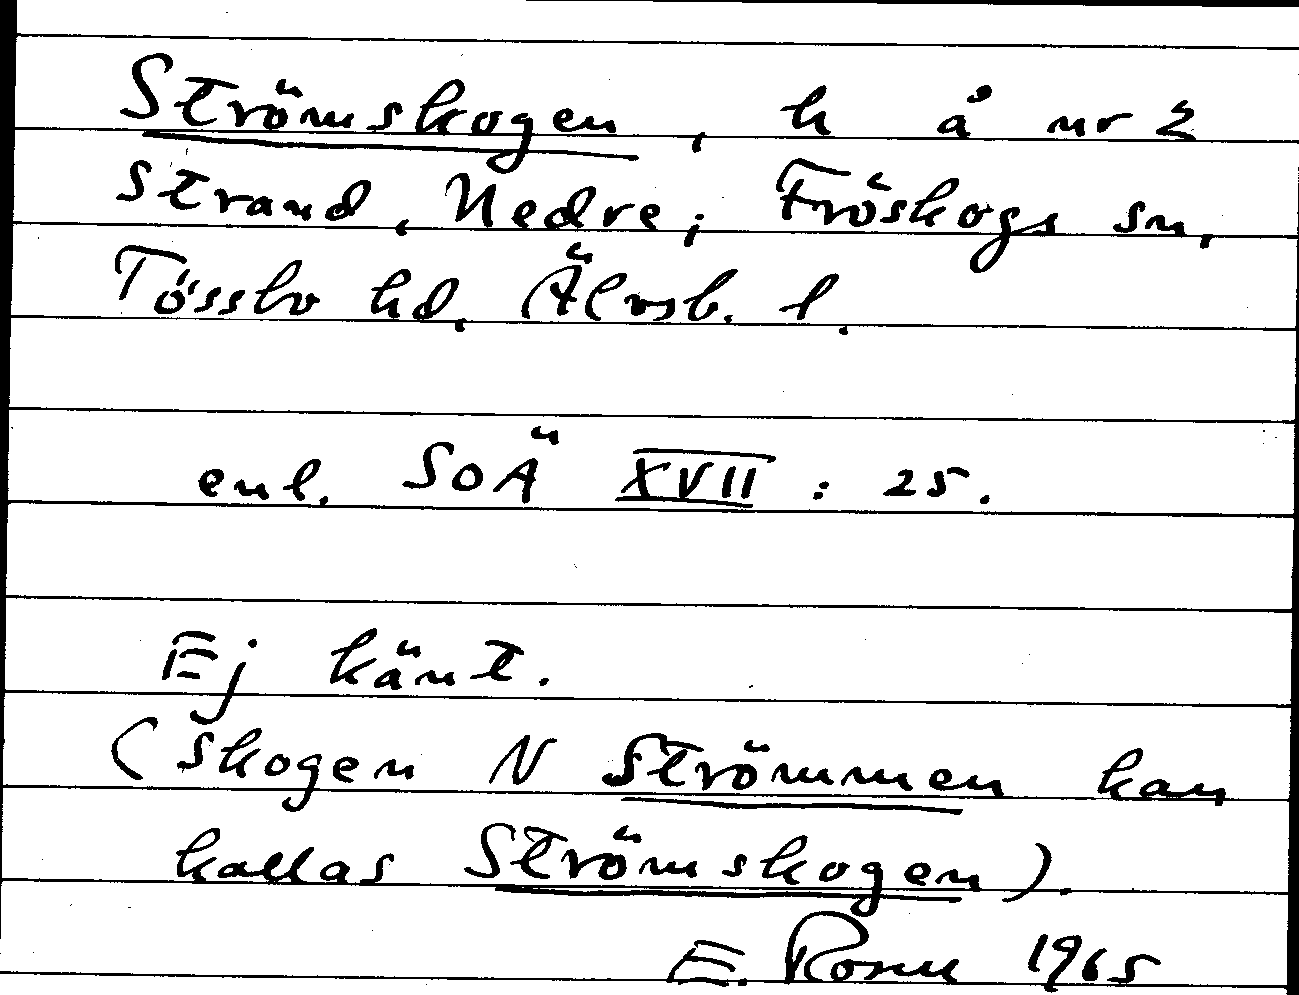 Strömskogen, h å nr 2
Strand, Nedre; Fröskogs sn,
Tössbo hd, Älvsb. l.
enl. SOÄ XVII : 25.
Ej känt.
(Skogen N Strömmen kan
kallas Strömskogen).
E. 1965